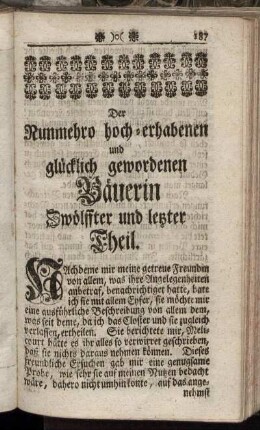 187
Der
Nunmehro hoch-erhabenen
und
glücklich gewordenen
Bäuerin
Zwölffter und letzter
Theil.
NAchdeme mir meine getreue Freundin
von allem, was ihre Angelegenheiten
anbetraf, benachrichtiget hatte, bate
ich sie mit allem Eyfer, sie möchte mir
eine ausführliche Beschreibung von allem dem,
was seit deme, da ich das Closter und sie zugleich
verlassen, ertheilen. Sie berichtete mir, Meli-
court hätte es ihr alles so verwirret geschrieben,
daß sie nichts daraus nehmen können. Dieses
freundliche Ersuchen gab mir eine genugsame
Probe, wie sehr sie auf meinen Nutzen bedacht
wäre, dahero nicht umhin konte, auf das ange-
nehmst